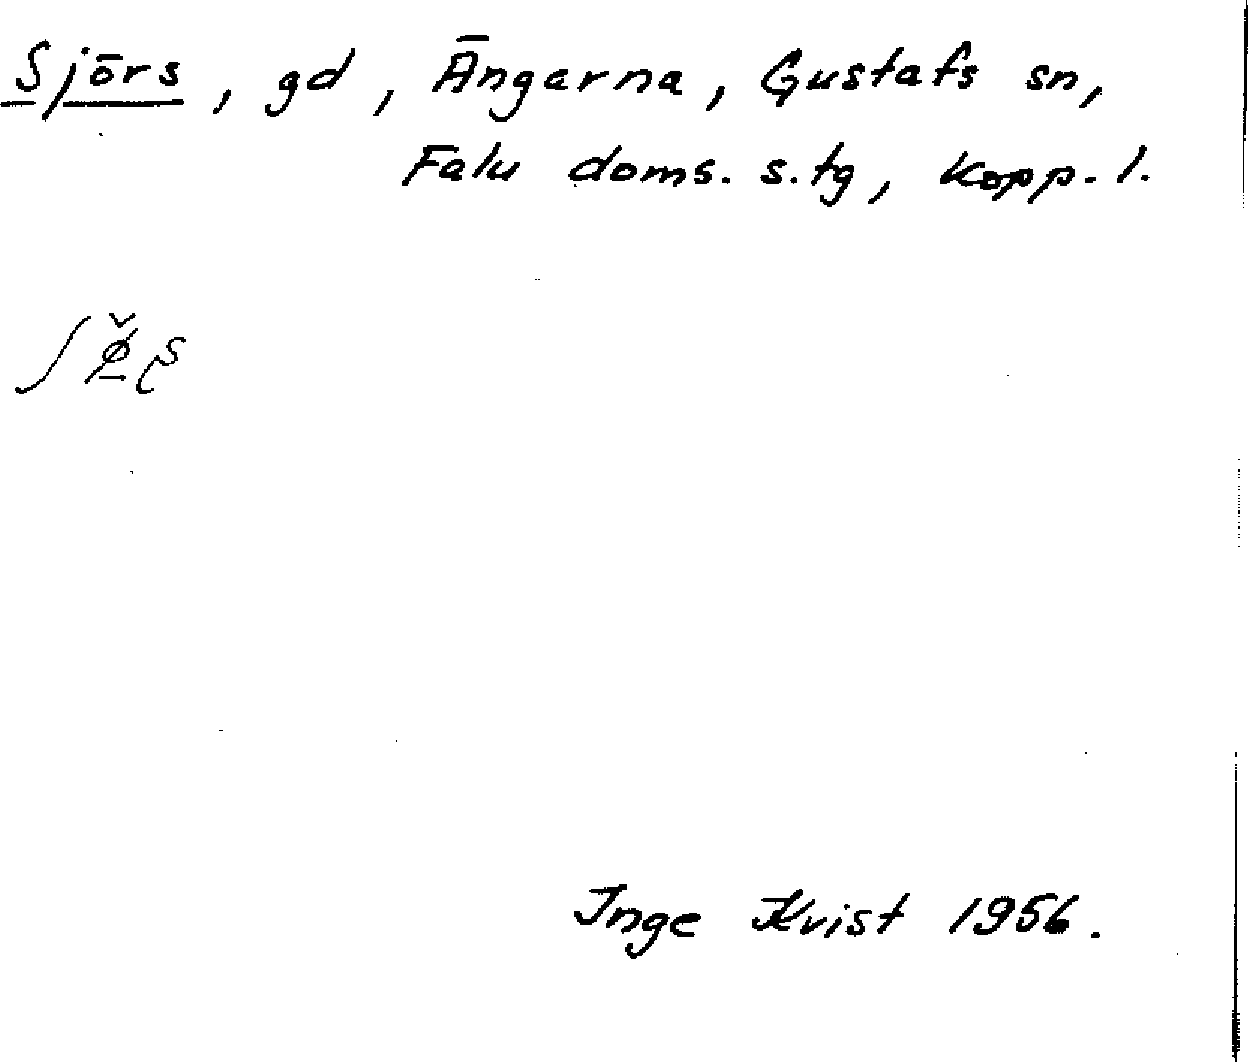 Sjörs, gd, Ängarna, Gustafs sn,
Falu doms. s. tg, Kopp. l.
Inge Kvist 1956.